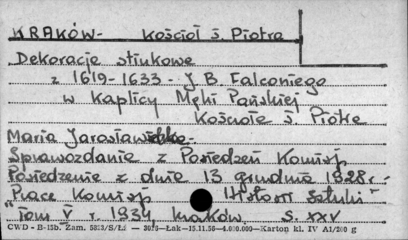 KRAKÓW- Kościół ś. Piotra
Dekoracje stiukowe
z 1619-1633 - J. B. Falconiego
w Kaplicy Męki Pańskiej
Kościole ś. Piotra
Maria
Sprawozdanie z Posiedzeń Komisji
Posiedzenie z dnia 13 grudnia 1928 r.-
"Prace Komisji Historii Sztuki"
Tom V r. 1934, Kraków, s. XXV
CWD - B-13b. Zam. - Łak-15.11.55-4.000.000-Karton kl. IV A1/200 g